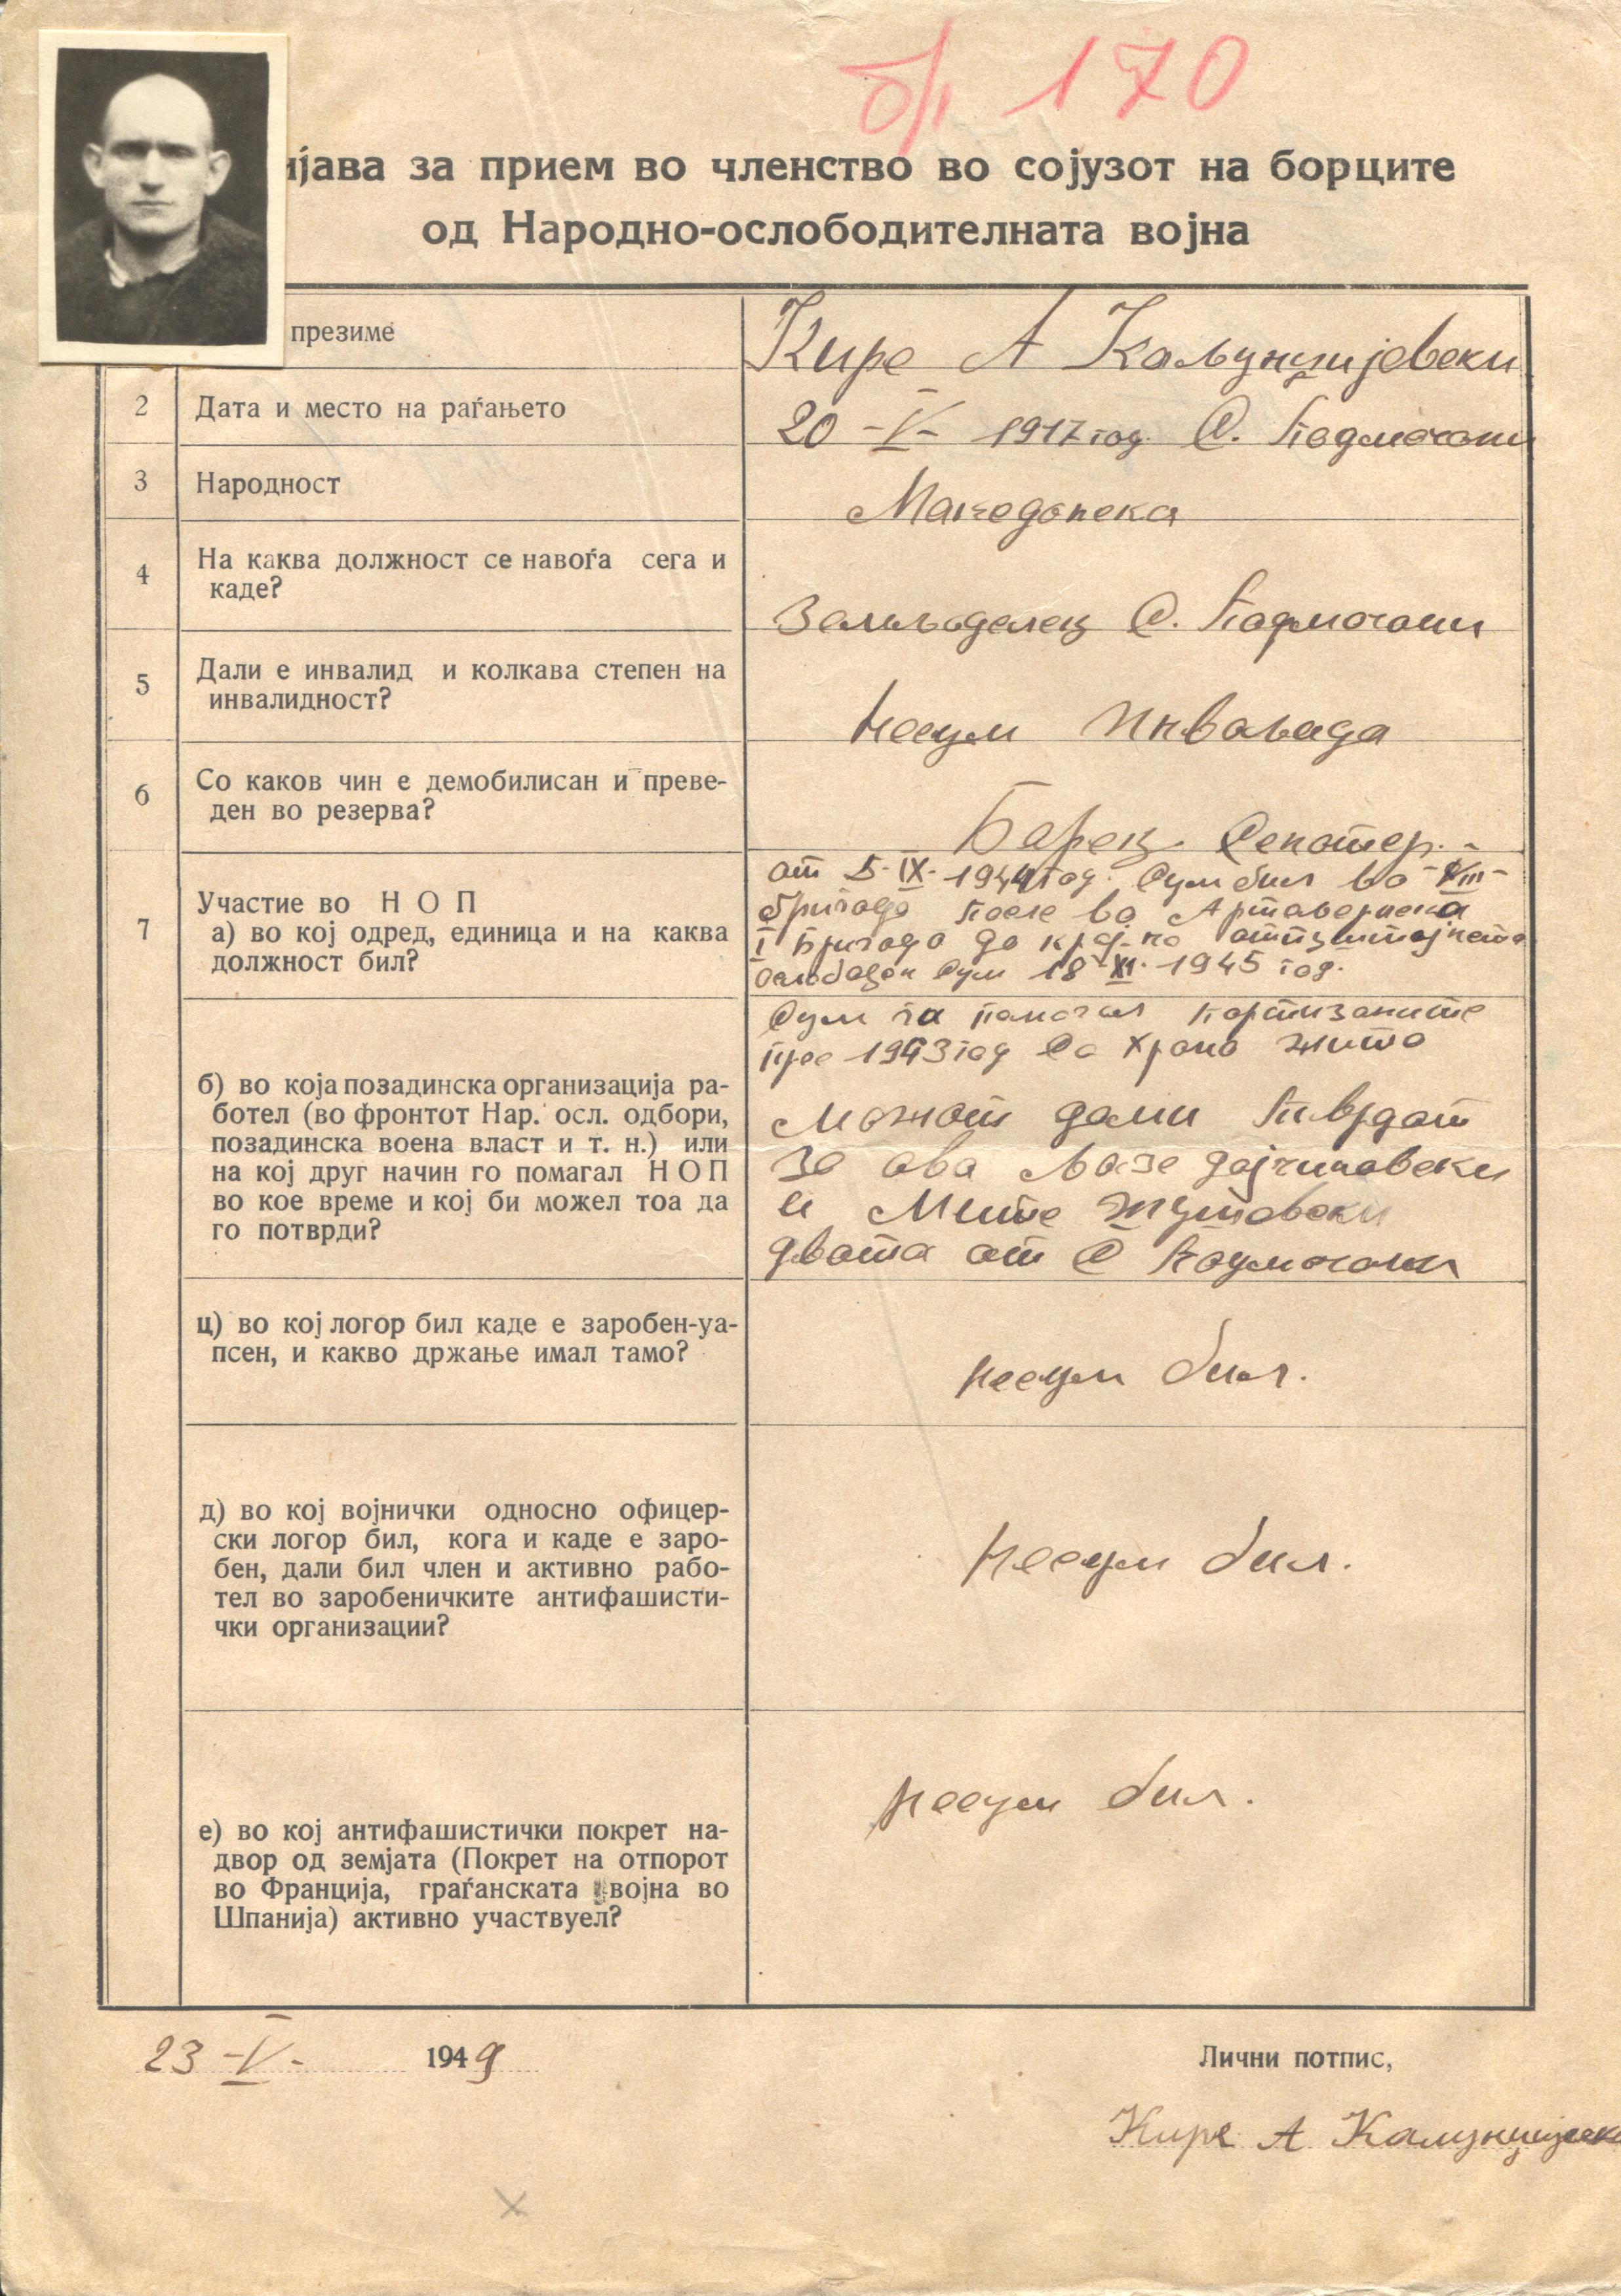 б/ 170
ијава за прием во членство во сојузот на борците
од Народно-ослободителната војна
презиме
Кире А Каљунџијевски
2 Дата и место на раѓањето
20 -V- 1917 год. С. Подмочани
3 Народност
Македонска
4 На каква должност се навоѓа сега и
каде?
Земљоделец С. Подмочани
5 Дали е инвалид и колкава степен на
инвалидност?
Несум Инвалида
6 Со каков чин е демобилисан и преве-
ден во резерва?
Борец
7 Участие во Н О П
а) во кој одред, единица и на каква
должност бил?
от 5-IX-1944 год. Сум бил во VIII-
бригада после во
I Бригада до крај на
Сум 18-XI-1945 год.
б) во која позадинска организација ра-
ботел (во фронтот Нар. осл. одбори,
позадинска воена власт и т. н.) или
на кој друг начин го помагал Н О П
во кое време и кој би можел тоа да
го потврди?
Сум га помагал партизаните
1943 год Со храна жито
Можат да ми тврдат
за ова Лазе Дојчиновски
и Мите Жутовски
двата от С Подмочани
ц) во кој логор бил каде е заробен-уа-
псен, и какво држање имал тамо?
несум бил.
д) во кој војнички односно офицер-
ски логор бил, кога и каде е заро-
бен, дали бил член и активно рабо-
тел во заробеничките антифашисти-
чки организации?
Несум бил.
е) во кој антифашистички покрет на-
двор од земјата (Покрет на отпорот
во Франција, граѓанската војна во
Шпанија) активно участвуел?
несум бил.
23 -V- 1949
Лични потпис,
Кире А